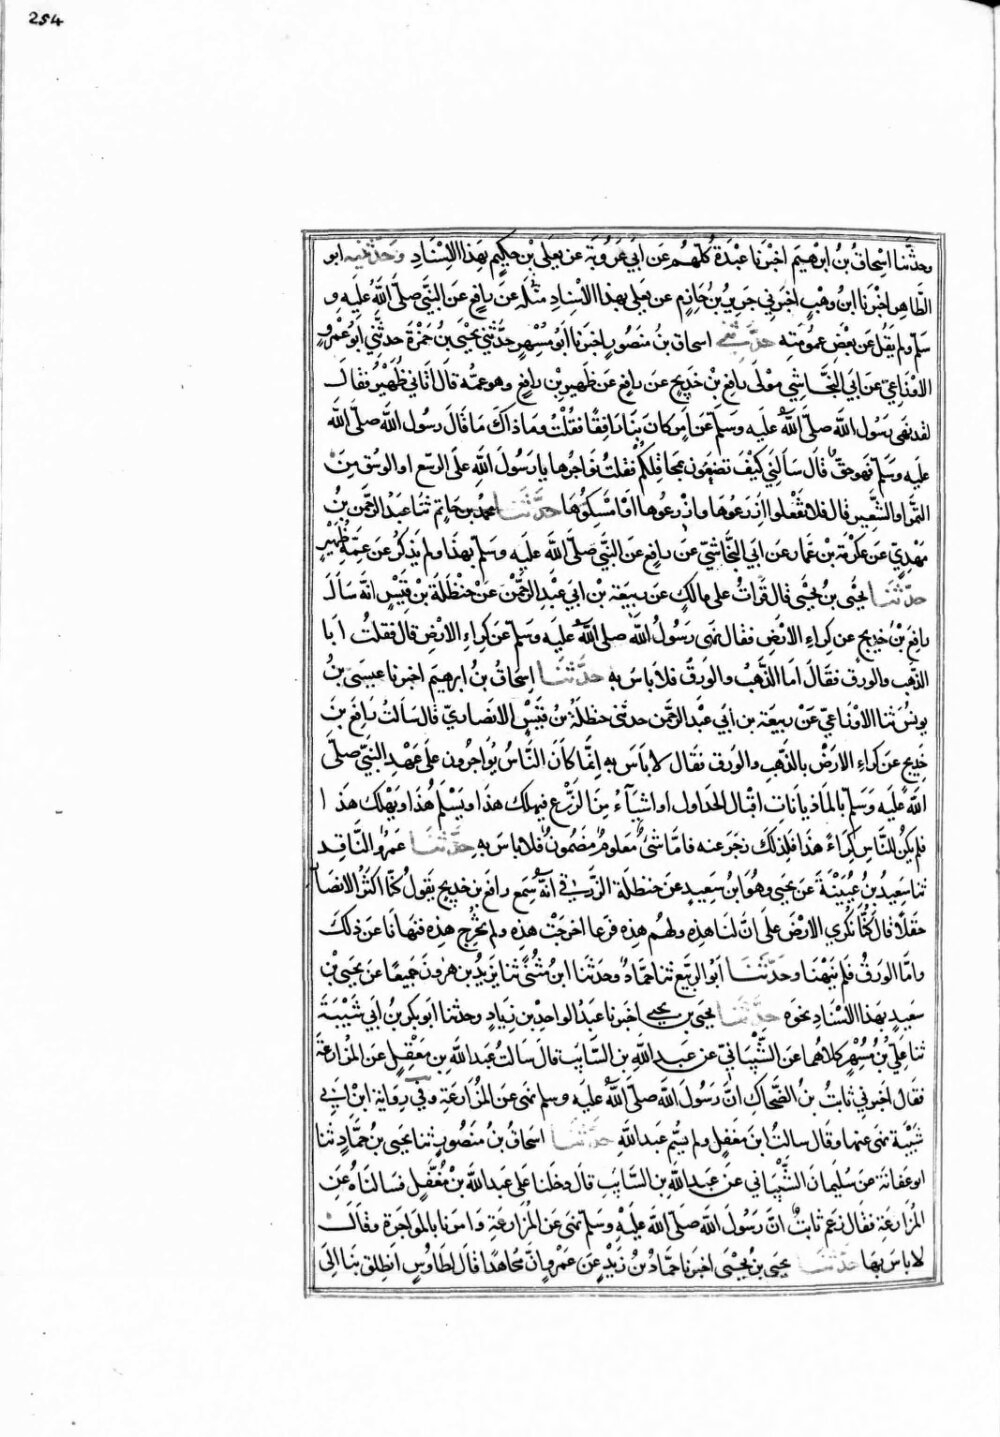 254
وحدثنا اسحاق بن ابرهيم اخبرنا عبدة كلهم عن ابي عروبة عن يعلى بن حكيم بهذا الاسناد وحدثنيه ابو
الطاهر اخبرنا ابن وهب اخبرني جرير بن حازم عن يعلى بهذا الاسناد مثله عن رافع عن النبي صلى الله عليه و
سلم ولم يقل عن بعض عمومته حدثني اسحاق بن منصور اخبرنا ابو مسهر حدثني يحيى بن حمزة حدثني ابو عمرو
الاوزاعي عن ابي النجاشي مولى رافع بن خديج عن رافع عن ظهير بن رافع وهو عمه قال اتاني ظهير فقال
لقد نهى رسول الله صلى الله عليه وسلم عن امر كان بنا رافقا فقلت وما ذاك ما قال رسول الله صلى الله
عليه وسلم فهو حق قال سالني كيف تصنعون بمحاقلكم فقلت نواجرها يا رسول الله على الربيع او الوسق من
التمر او الشعير قال فلا تفعلوا ازرعوها وازرعوها او امسكوها حدثنا محمد بن حاتم ثنا عبد الرحمن بن
مهدي عن عكرمة بن عمار عن ابي النجاشي عن رافع عن النبي صلى الله عليه وسلم بهذا ولم يذكر عن عمه ظهير
حدثنا يحيى بن يحيى قال قرات على مالك عن ربيعة بن ابي عبد الرحمن عن حنظلة بن قيس انه سال
رافع بن خديج عن كراء الارض فقال نهى رسول الله صلى الله عليه وسلم عن كراء الارض قال فقلت ابا
الذهب والورق فقال اما الذهب والورق فلا باس به حدثنا اسحاق بن ابرهيم اخبرنا عيسى بن
يونس ثنا الاوزاعي عن ربيعة بن ابي عبد الرحمن حدثني حنظلة بن قيس الانصاري قال سالت رافع بن
خديج عن كراء الارض بالذهب والورق فقال لا باس به انما كان الناس يواجرون على عهد النبي صلى
الله عليه وسلم بالماذيانات اقبال الجداول او اشياء من الزرع فيهلك هذا ويسلم هذا ويهلك هذا
فلم يكن للناس كراء هذا فلذلك زجر عنه فاما شئ معلوم مضمون فلا باس به حدثنا عمرو الناقد
ثنا سعيد بن عيينة عن يحيى وهو ابن سعيد عن حنظلة الزرقي انه سمع رافع بن خديج يقول كنا اكثر الانصار
حقلا قال كنا نكري الارض على ان لنا هذه ولهم هذه فربما اخرجت هذه ولم تخرج هذه فنهانا عن ذلك
واما الورق فلم ينهنا وحدثنا ابو الربيع ثنا حماد وحدثنا ابن مثنى ثنا يزيد بن هرون جميعا عن يحيى بن
سعيد بهذا الاسناد نحوه حدثنا يحيى بن يحيى اخبرنا عبد الواحد بن زياد وحدثنا ابو بكر بن ابي شيبة
ثنا علي بن مسهر كلاهما عن الشيباني عن عبد الله بن السايب قال سالت عبد الله بن معقل عن المزارعة
فقال اخبرني ثابت بن الضحاك ان رسول الله صلى الله عليه وسلم نهى عن المزارعة وفي رواية ابن ابي
شيبة نهى عنها وقال سالت ابن مغفل ولم يسم عبد الله حدثنا اسحاق بن منصور ثنا يحيى بن حماد ثنا
ابو عوانة عن سليمان الشيباني عن عبد الله بن السايب قال دخلنا على عبد الله بن مغفل فسالناه عن
المزارعة فقال زعم ثابت ان رسول الله صلى الله عليه وسلم نهى عن المزارعة وامرنا بالمواجرة وقال
لا باس بها حدثنا يحيى بن يحيى اخبرنا حماد بن زيد عن عمرو ان مجاهدا قال لطاوس انطلق بنا الى